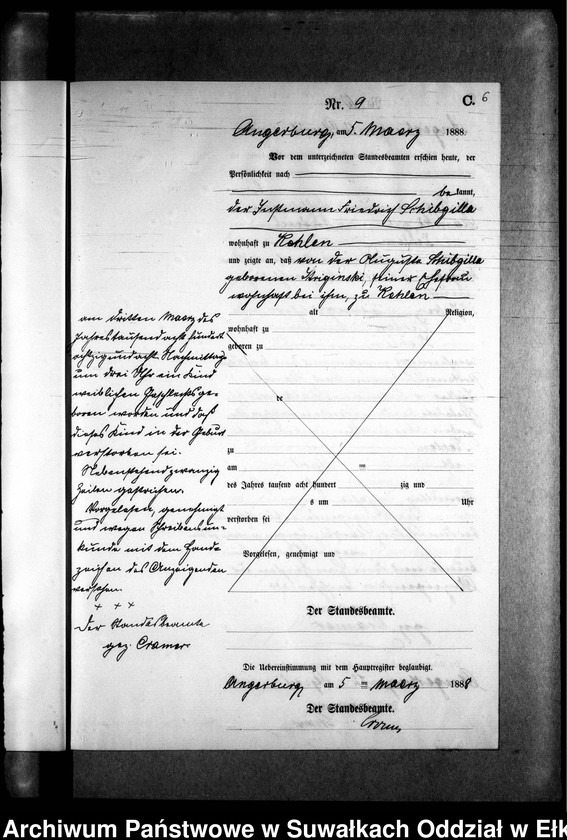 Nr. 9
C. 6
Angerburg, am 5. Maerz 1888.
Vor dem unterzeichneten Standesbeamten erschien heute, der
Persönlichkeit nach
be kannt,
der Instmann Friedrich Skibgilla
wohnhaft zu Kehlen
und zeigte an, daß von der Auguste Skibgilla
geborenen Striginski, seiner Ehefrau
wohnhaft bei ihm, zu Kehlen
alt Religion,
wohnhaft zu
geboren zu
te
zu
am ten
des Jahres tausend acht hundert zig und
s um Uhr
verstorben sei
Vorgelesen, genehmigt und
am dritten Maerz des
Jahres tausend acht hundert
achtzig und acht Nachmittags
um drei Uhr ein Kind
weiblichen Geschlechts ge-
boren worden und daß
dieses Kind in der Geburt
verstorben sei.
Nebenstehend zwanzig
Zeilen gestrichen.
Vorgelesen, genehmigt
und wegen Schreibensun-
kunde mit dem Hand
zeichen des Anzeigenden
versehen.
+ + +
Der Standesbeamte
gez. Cramer
Der Standesbeamte.
Die Uebereinstimmung mit dem Hauptregister beglaubigt.
Angerburg, am 5 ten Maerz 1888
Der Standesbeamte.
Cramer
Archiwum Państwowe w Suwałkach Oddział w Ełk